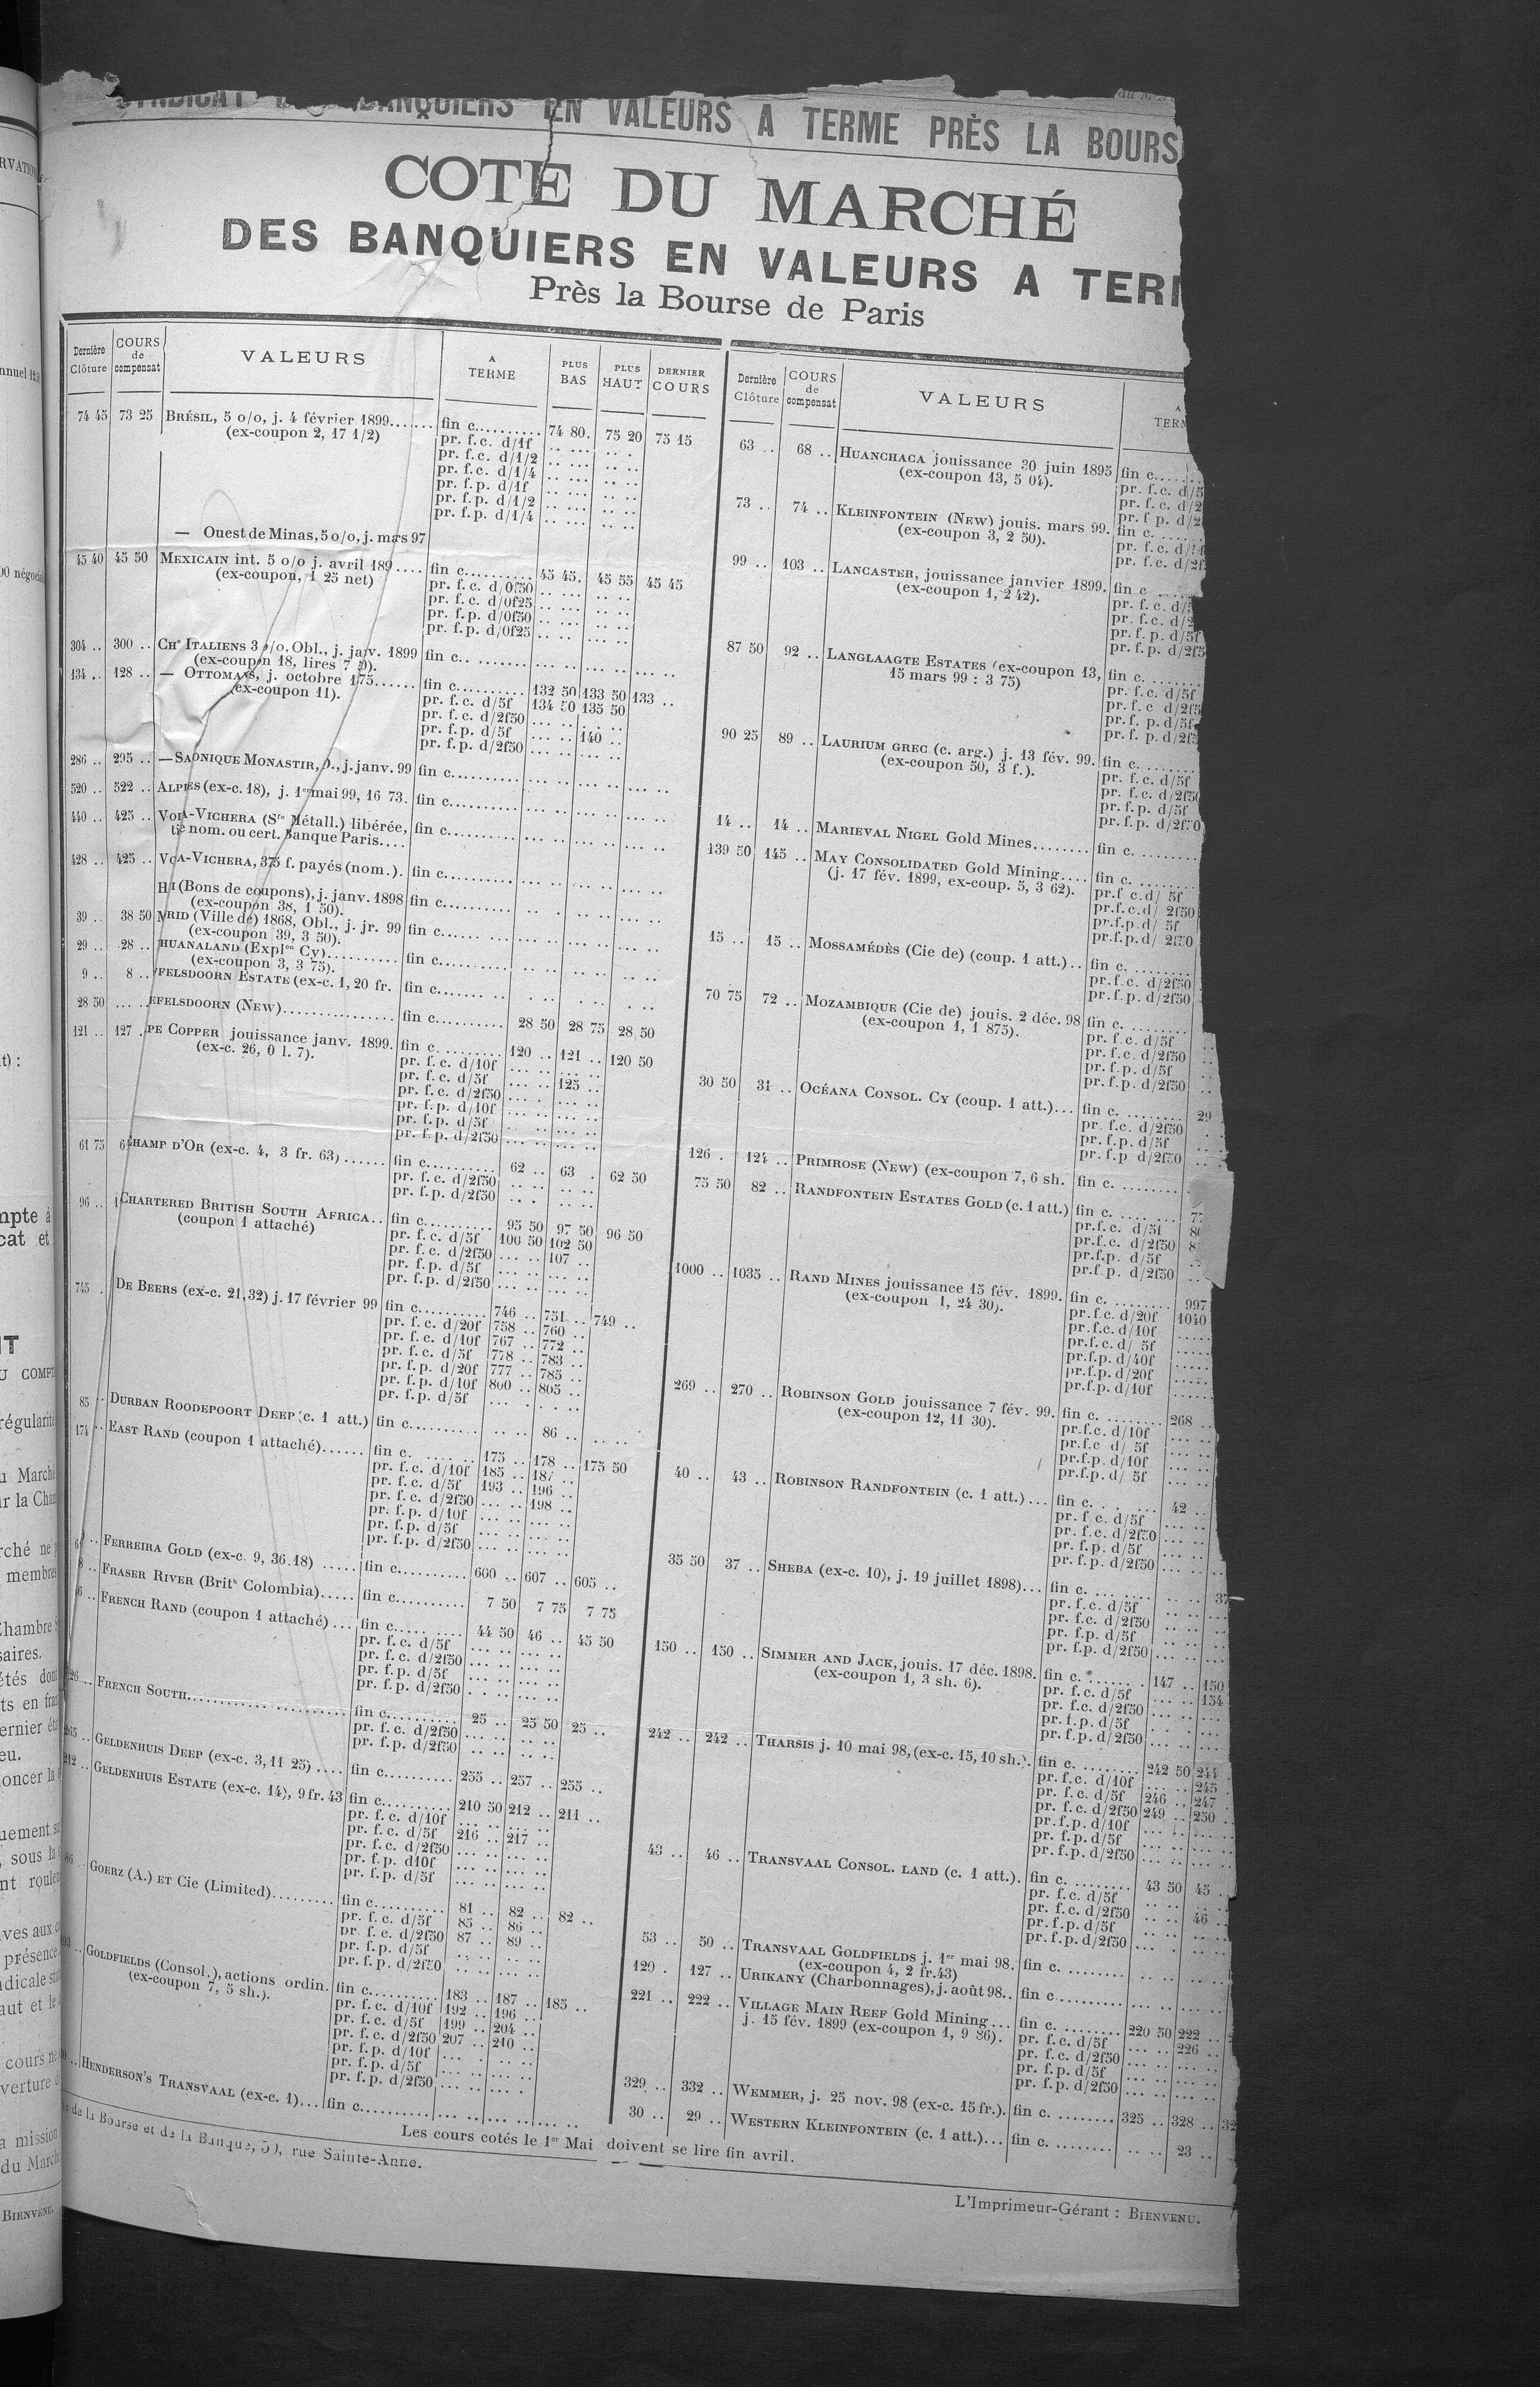 SYNDICAT BANQUIERS EN VALEURS A TERME PRÈS LA BOURS
COTE DU MARCHÉ
DES BANQUIERS EN VALEURS A TER
Près la Bourse de Paris
Dernière Clôture COURS de compensat VALEURS A TERME PLUS BAS PLUS HAUT DERNIER COURS
74 45 73 25 BRÉSIL, 5 o/o, j. 4 février 1899...... fin c.......... 74 80. 75 20 75 15
(ex-coupon 2, 17 1/2) pr. f.c. d/1f
pr. f.c. d/1/2
pr. f.c. d/1/4
pr. f.p. d/1f
pr. f.p. d/1/2
pr. f.p. d/1/4
— Ouest de Minas, 5 o/o, j. mars 97
45 40 45 50 MEXICAIN int. 5 o/o j. avril 189 .... fin c.......... 45 45. 45 55 45 45
(ex-coupon, 1 25 net) pr. f.c. d/0f50
pr. f.c. d/0f25
pr. f.p. d/0f50
pr. f.p. d/0f25
304 .. 300 .. CHs ITALIENS 3 o/o, Obl., j. janv. 1899 fin c.. ........
(ex-coupon 18, lires 7 50).
134 .. 128 .. — OTTOMANS, j. octobre 175...... fin c.......... 132 50 133 50 133 ..
(ex-coupon 11). pr. f.c. d/5f 134 50 135 50
pr. f.c. d/2f50
pr. f.p. d/5f ... .. 140 ..
pr. f.p. d/2f50
286 .. 295 .. — SAONIQUE MONASTIR, j. janv. 99 fin c..........
520 .. 522 .. ALPIES (ex-c. 18), j. 1er mai 99, 16 73. fin c..........
440 .. 425 .. VICHERA (Sté Métall.) libérée, fin c..........
nom. ou cert. Banque Paris....
428 .. 425 .. VICHERA, 375 f. payés (nom.). fin c..........
(Bons de coupons), j. janv. 1898 fin c..........
(ex-coupon 38, 1 50).
39 .. 38 50 MRID (Ville de) 1868, Obl., j. jr. 99 fin c......
(ex-coupon 39, 3 50).
29 .. 28 .. HUANALAND (Explon Cy).......... fin c..........
(ex-coupon 3, 3 75).
9 .. 8 .. FELSDOORN ESTATE (ex-c. 1, 20 fr. fin c.......
28 50 ... .. EFELSDOORN (NEW)............... fin c.......... 28 50 28 75 28 50
121 .. 127 .. PE COPPER jouissance janv. 1899. fin c.......... 120 .. 121 .. 120 50
(ex-c. 26, 0 l. 7). pr. f.c. d/10f
pr. f.c. d/5f ... .. 125 ..
pr. f.c. d/2f50
pr. f.p. d/10f
pr. f.p. d/5f
pr. f.p. d/2f50
61 75 CHAMP D'OR (ex-c. 4, 3 fr. 63)...... fin c.......... 62 .. 63 . 62 50
pr. f.c. d/2f50
pr. f.p. d/2f50
96 .. CHARTERED BRITISH SOUTH AFRICA.. fin c.......... 95 50 97 50 96 50
(coupon 1 attaché) pr. f.c. d/5f 100 50 102 50
pr. f.c. d/2f50 ... .. 107 ..
pr. f.p. d/5f
pr. f.p. d/2f50
745 . DE BEERS (ex-c. 21,32) j. 17 février 99 fin c.......... 746 .. 751 .. 749 ..
pr. f.c. d/20f 758 .. 760 ..
pr. f.c. d/10f 767 .. 772 ..
pr. f.c. d/5f 778 .. 783 ..
pr. f.p. d/20f 777 .. 785 ..
pr. f.p. d/10f 800 .. 805 ..
pr. f.p. d/5f
85 .. DURBAN ROODEPOORT DEEP (c. 1 att.) fin c.......... .. .. 86 ..
174 .. EAST RAND (coupon 1 attaché)...... fin c. 175 .. 178 .. 175 50
pr. f.c. d/10f 185 .. 187 ..
pr. f.c. d/5f 193 .. 196 ..
pr. f.c. d/2f50 ... .. 198 ..
pr. f.p. d/10f
pr. f.p. d/5f
pr. f.p. d/2f50
FERREIRA GOLD (ex-c. 9, 36.18) ..... fin c.......... 600 .. 607 .. 605 ..
8 .. FRASER RIVER (Brith Colombia)..... fin c.......... 7 50 7 75 7 75
6 .. FRENCH RAND (coupon 1 attaché) ... fin c.......... 44 50 46 .. 45 50
pr. f.c. d/5f
pr. f.c. d/2f50
pr. f.p. d/5f
pr. f.p. d/2f50
26 .. FRENCH SOUTH.................... fin c.......... 25 .. 25 50 25 ..
pr. f.c. d/2f50
pr. f.p. d/2f50
265 .. GELDENHUIS DEEP (ex-c. 3, 11 25) .... fin c.......... 255 .. 257 .. 255 ..
212 .. GELDENHUIS ESTATE (ex-c. 14), 9 fr. 43 fin c.......... 210 50 212 .. 211 ..
pr. f.c. d/10f
pr. f.c. d/5f 216 .. 217 ..
pr. f.c. d/2f50
pr. f.p. d10f
pr. f.p. d/5f
86 .. GOERZ (A.) ET Cie (Limited)......... fin c.......... 81 .. 82 .. 82 ..
pr. f.c. d/5f 85 .. 86 ..
pr. f.c. d/2f50 87 .. 89 ..
pr. f.p. d/5f
pr. f.p. d/2f50
GOLDFIELDS (Consol.), actions ordin. fin c.......... 183 .. 187 .. 185 ..
(ex-coupon 7, 5 sh.). pr. f.c. d/10f 192 .. 196 ..
pr. f.c. d/5f 199 .. 204 ..
pr. f.c. d/2f50 207 .. 210 ..
pr. f.p. d/10f
pr. f.p. d/5f
pr. f.p. d/2f50
HENDERSON'S TRANSVAAL (ex-c. 1)... fin c..........
Dernière Clôture COURS de compensat VALEURS A TER
63 .. 68 .. HUANCHACA jouissance 30 juin 1895 fin c......
(ex-coupon 13, 5 04). pr. f.c. d/5
pr. f.c. d/2
pr. f p. d/2
73 .. 74 .. KLEINFONTEIN (NEW) jouis. mars 99. fin c. ......
(ex-coupon 3, 2 50). pr. f.c. d/
pr. f.p. d/2f
99 .. 103 .. LANCASTER, jouissance janvier 1899. fin c
(ex-coupon 1, 2 42). pr. f.c. d/5
pr. f.c. d/2
pr. f. p. d/5f
pr. f.p. d/2f5
87 50 92 .. LANGLAAGTE ESTATES (ex-coupon 13, fin c. .......
15 mars 99 : 3 75) pr. f.c. d/5f
pr. f.c d/2f5
pr. f. p. d/5f
pr. f. p. d/2f5
90 25 89 .. LAURIUM GREC (c. arg.) j. 13 fév. 99. fin c. .......
(ex-coupon 50, 3 f.). pr. f.c. d/5f
pr. f.c. d/2f50
pr. f.p. d/5f
pr. f.p. d/2f50
14 .. 14 .. MARIEVAL NIGEL Gold Mines........ fin c. ........
139 50 145 .. MAY CONSOLIDATED Gold Mining.... fin c. ........
(j. 17 fév. 1899, ex-coup. 5, 3 62). pr.f c.d/ 5f
pr.f.c.d/ 2f50
pr.f.p.d/ 5f
pr.f.p.d/ 2f50
15 .. 15 .. MOSSAMÉDÈS (Cie de) (coup. 1 att.).. fin c. ........
pr.f.c. d/2f50
pr.f.p. d/2f50
70 75 72 .. MOZAMBIQUE (Cie de) jouis. 2 déc. 98 fin c. ........
(ex-coupon 1, 1 875). pr. f.c. d/5f
pr. f.c. d/2f50
pr. f.p. d/5f
pr. f.p. d/2f50
30 50 31 .. OCÉANA CONSOL. CY (coup. 1 att.)... fin c. ........ 29
pr. f.c. d/2f50
pr. f.p. d/5f
pr. f.p d/2f50
126 . 124 .. PRIMROSE (NEW) (ex-coupon 7, 6 sh. fin c. ........
75 50 82 .. RANDFONTEIN ESTATES GOLD (c. 1 att.) fin c. ........
pr.f.c. d/5f
pr.f.c. d/2f50
pr.f.p. d/5f
pr.f.p. d/2f50
1000 .. 1035 .. RAND MINES jouissance 15 fév. 1899. fin c. ........ 997
(ex-coupon 1, 24 30). pr.f.c. d/20f 1040
pr.f.c. d/10f
pr.f.c. d/ 5f
pr.f.p. d/40f
pr.f.p. d/20f
pr.f.p. d/10f
269 .. 270 .. ROBINSON GOLD jouissance 7 fév. 99. fin c. ........ 268 ..
(ex-coupon 12, 11 30). pr.f.c. d/10f
pr.f.c d/ 5f
pr.f.p. d/10f
pr.f.p. d/ 5f
40 .. 43 .. ROBINSON RANDFONTEIN (c. 1 att.)... fin c. 42 ..
pr. f.c. d/5f
pr. f.c. d/2f50
pr. f.p. d/5f
pr. f.p. d/2f50
35 50 37 .. SHEBA (ex-c. 10), j. 19 juillet 1898)... fin c. .. .. 37
pr. f.c. d/5f
pr. f.c. d/2f50
pr. f.p. d/5f
pr. f.p. d/2f50
150 .. 150 .. SIMMER AND JACK, jouis. 17 déc. 1898. fin c. 147 .. 150
(ex-coupon 1, 3 sh. 6). pr. f.c. d/5f ... .. 154
pr. f.c. d/2f50
pr. f.p. d/5f
pr. f.p. d/2f50
242 .. 242 .. THARSIS j. 10 mai 98, (ex-c. 15, 10 sh.). fin c. ........ 242 50 244
pr. f.c. d/10f ... .. 245
pr. f.c. d/5f 246 .. 247
pr. f.c. d/2f50 249 .. 250
pr. f.p. d/10f
pr. f.p. d/5f
pr. f.p. d/2f50
43 .. 46 .. TRANSVAAL CONSOL. LAND (c. 1 att.). fin c. ........ 43 50 45 ..
pr. f.c. d/5f
pr. f.c. d/2f50 .. .. 46 ..
pr. f.p. d/5f
pr. f.p. d/2f50
53 .. 50 .. TRANSVAAL GOLDFIELDS j. 1er mai 98. fin c. ........
(ex-coupon 4, 2 fr.43)
129 . 127 .. URIKANY (Charbonnages), j. août 98.. fin c..........
221 .. 222 .. VILLAGE MAIN REEF Gold Mining... fin c. ........ 220 50 222 ..
j. 15 fév. 1899 (ex-coupon 1, 9 86). pr. f.c. d/5f ... .. 226 ..
pr. f.c. d/2f50
pr. f.p. d/5f
pr. f.p. d/2f50
329 .. 332 .. WEMMER, j. 25 nov. 98 (ex-c. 15 fr.). fin c. ........ 325 .. 328 .. 32
30 .. 29 .. WESTERN KLEINFONTEIN (c. 1 att.)... fin c. ........ .. .. 23 ..
Les cours cotés le 1er Mai doivent se lire fin avril.
de la Bourse et de la Banque, rue Sainte-Anne.
L'Imprimeur-Gérant : BIENVENU.